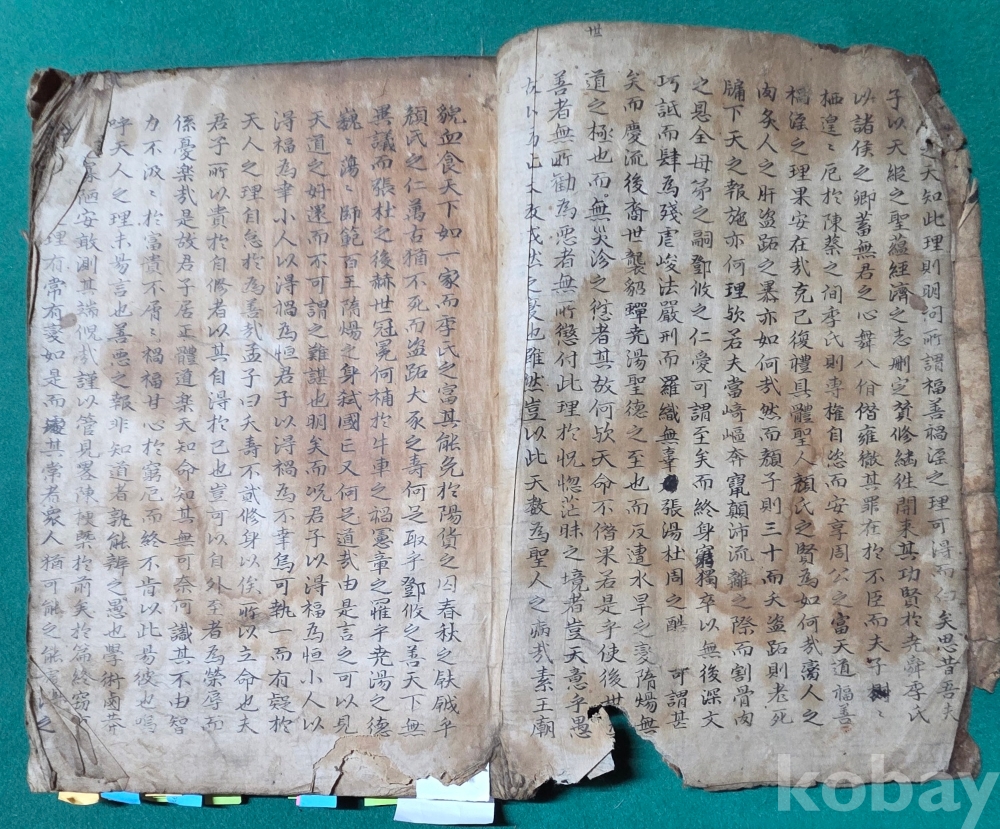 世
之天知此理則明问所謂福善禍淫之理可得而矣思昔吾夫
子以天縱之聖蘊經濟之志刪定贊修継徃開来其功賢於尭舜季氏
以諸侯之卿蓄無君之心舞八佾僣雍徹其罪在於不臣而夫子〻
栖遑〻厄於陳蔡之间季氏則專權自恣而安享周公之富天道福善
禍淫之理果安在㢤克己復禮具體聖人顔氏之賢為如何㢤膾人之
肉炙人之肝盗跖之暴亦如何㢤然而顔子則三十而夭盗跖則老死
牖下天之報施亦何理欤若夫當崎嶇奔竄顛沛流離之際而割骨肉
之恩全母弟之嗣鄧攸之仁愛可謂至矣而終身窮獨卒以無後深文
巧詆而肆為殘虐峻法嚴刑而羅織無辜張湯杜周之酷可謂甚
矣而慶流後裔世襲貂蟬尭湯聖德之至也而反遭水旱之変隋煬無
道之極也而無災沴之者其故何欤天命不僣果若是乎使後世
善者無所勸為悪者無所懲付此理於怳惚茫昧之境者豈天意乎愚
之変也雖然豈以此天数為聖人之病㢤素王廟
貌血食天下如一家而季氏之富其能免於陽貨之囚春秋之鈇鉞乎
顔氏之仁萬古猶不死而盗跖犬豕之壽何足取乎鄧攸之善天下無
異議而張杜之後赫世冠冕何補於牛車之禍憲章之罹乎尭湯之德
巍〻蕩〻師範百王隋煬之身弑國亡又何足道㢤由是言之可以見
天道之好還而不可謂之難諶也明矣而况君子以得福為恒小人以
淂福為幸小人以淂禍為恒君子以淂禍為不幸烏可執一而有疑於
天人之理自怠於為善㢤孟子曰夭壽不貳修身以俟所以立命也夫
君子所以貴於自修者以其自淂於己也豈可以自外至者為榮辱而
係憂楽㢤是故君子居正體道楽天知命知其無可奈何識其不由智
力不汲〻於富貴不屑〻禍福甘心於窮厄而終不肯以此易彼也嗚
呼天人之理未易言也善悪之報非知道者孰能辨之愚也學術鹵莽
陋安敢測其端倪㢤謹以管見畧陳梗槩於前矣於篇終窃
理有常有変如是而其常者衆人猶可能之能之
kobay